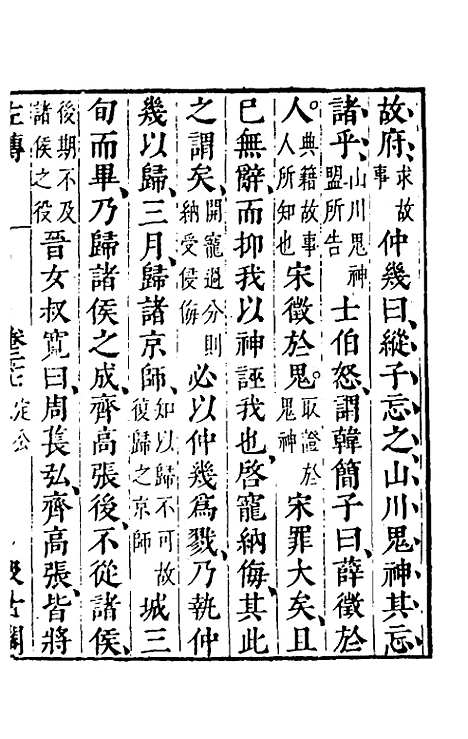 故府求故事仲幾曰縱子忘之山川鬼神其忘
諸乎山川鬼神盟所告士伯怒謂韓簡子曰薛徵於
人典籍故事人所知也宋徵於鬼取證於鬼神宋罪大矣且
已無辭而抑我以神誣我也啓寵納侮其此
之謂矣開寵過分則納受侵侮必以仲幾爲戮乃執仲
幾以歸三月歸諸京師知以歸不可故復歸之京師城三
旬而畢乃歸諸侯之戍齊高張後不從諸侯
後期不及諸侯之役晉女叔寬曰周萇弘齊高張皆將
左傳 卷 定公 汲古閣